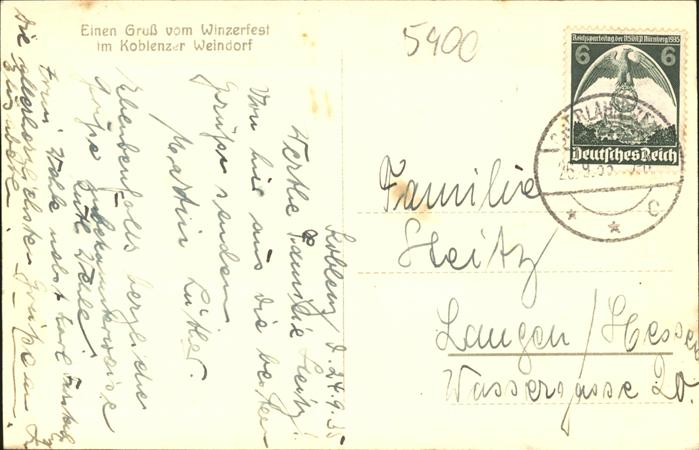 Einen Gruß vom Winzerfest
im Koblenzer Weindorf
5400
Reichsparteitag der NSDAP Nürnberg 1935
6 6
Deutsches Reich
26.9.35
c
Koblenz, d. 24.9.35
Werthe Familie Heitz!
Von hier aus die besten
Grüße senden
Martin
Ebenfalls herzliche
Grüße Unbekannterweise
Familie
Heitz
Langen/Hessen
Wassergasse 20.
Die allerherzlichsten Grüßen